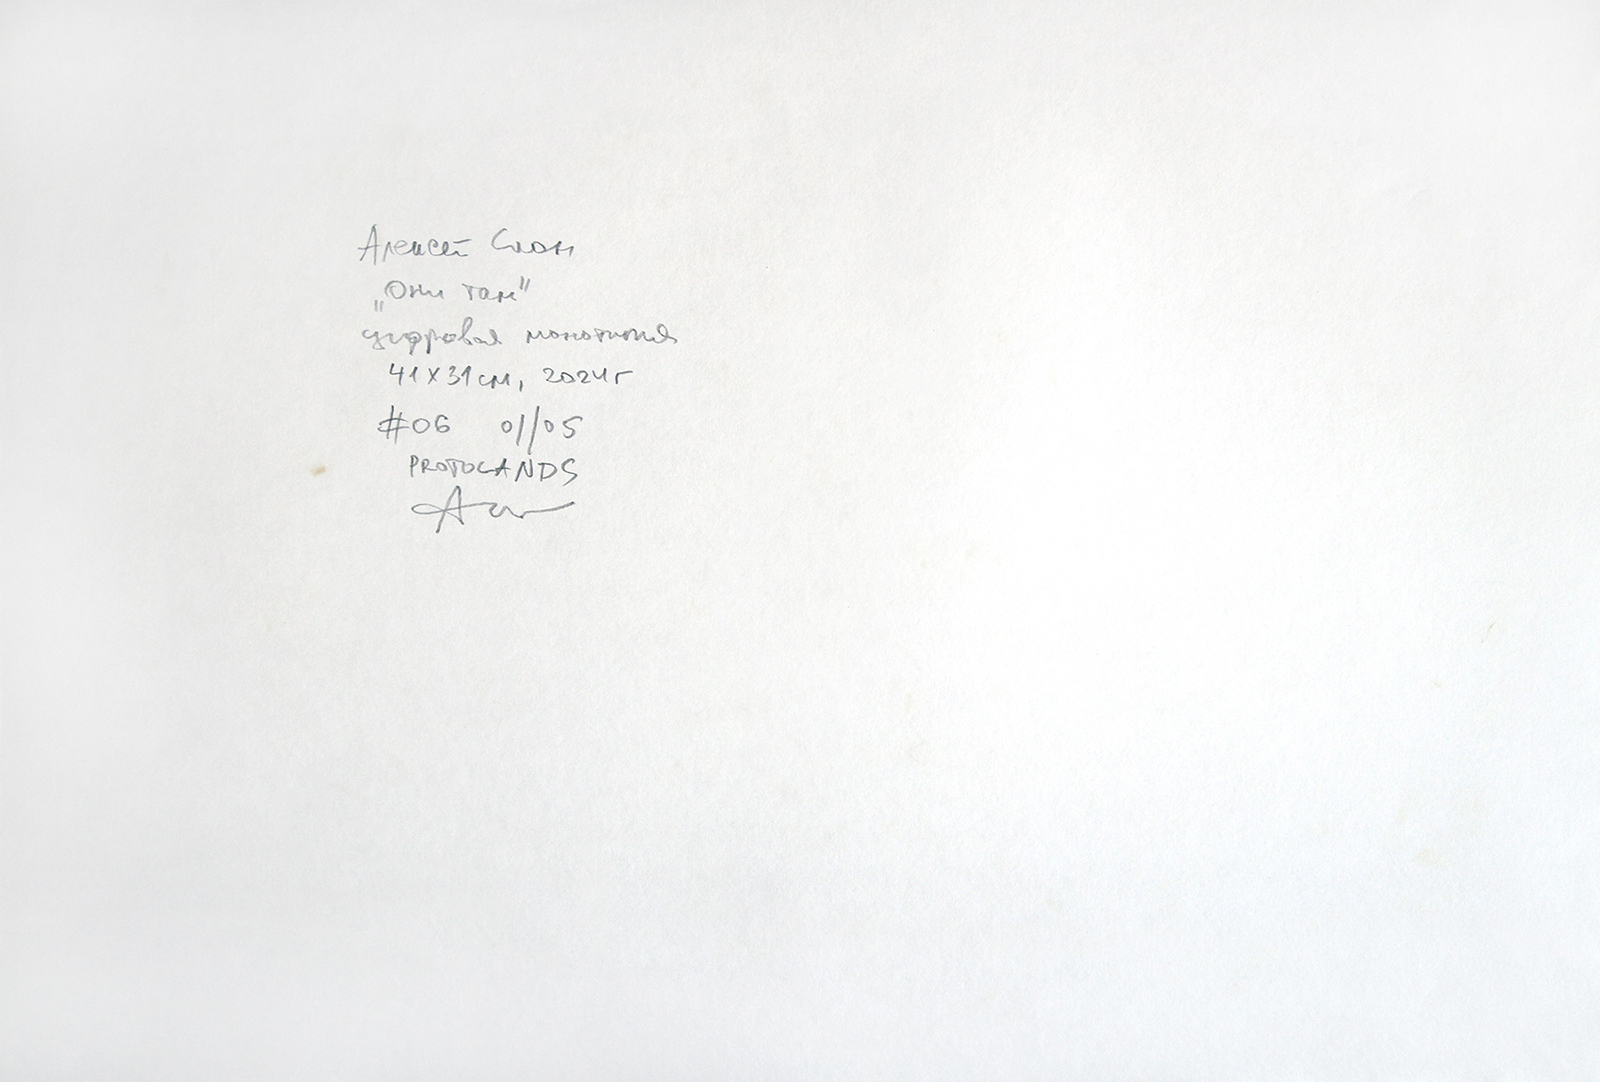 Алексей Слон
„Они там"
цифровая монотипия
41х31см, 2024г
#06 01//05
PROTOLANDS